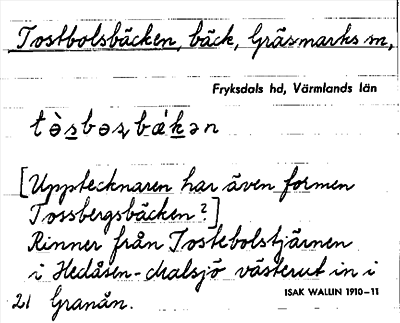 Tostbolsbäcken, bäck, Gräsmarks sn,
Fryksdals hd, Värmlands län
tòsbəʂbǽkən
[Upptecknaren har även formen
Tossbergsbäcken?]
Rinner från Tostebolstjärnen
i Hedåsen - västerut in i
21 Granån.
ISAK WALLIN 1910-11